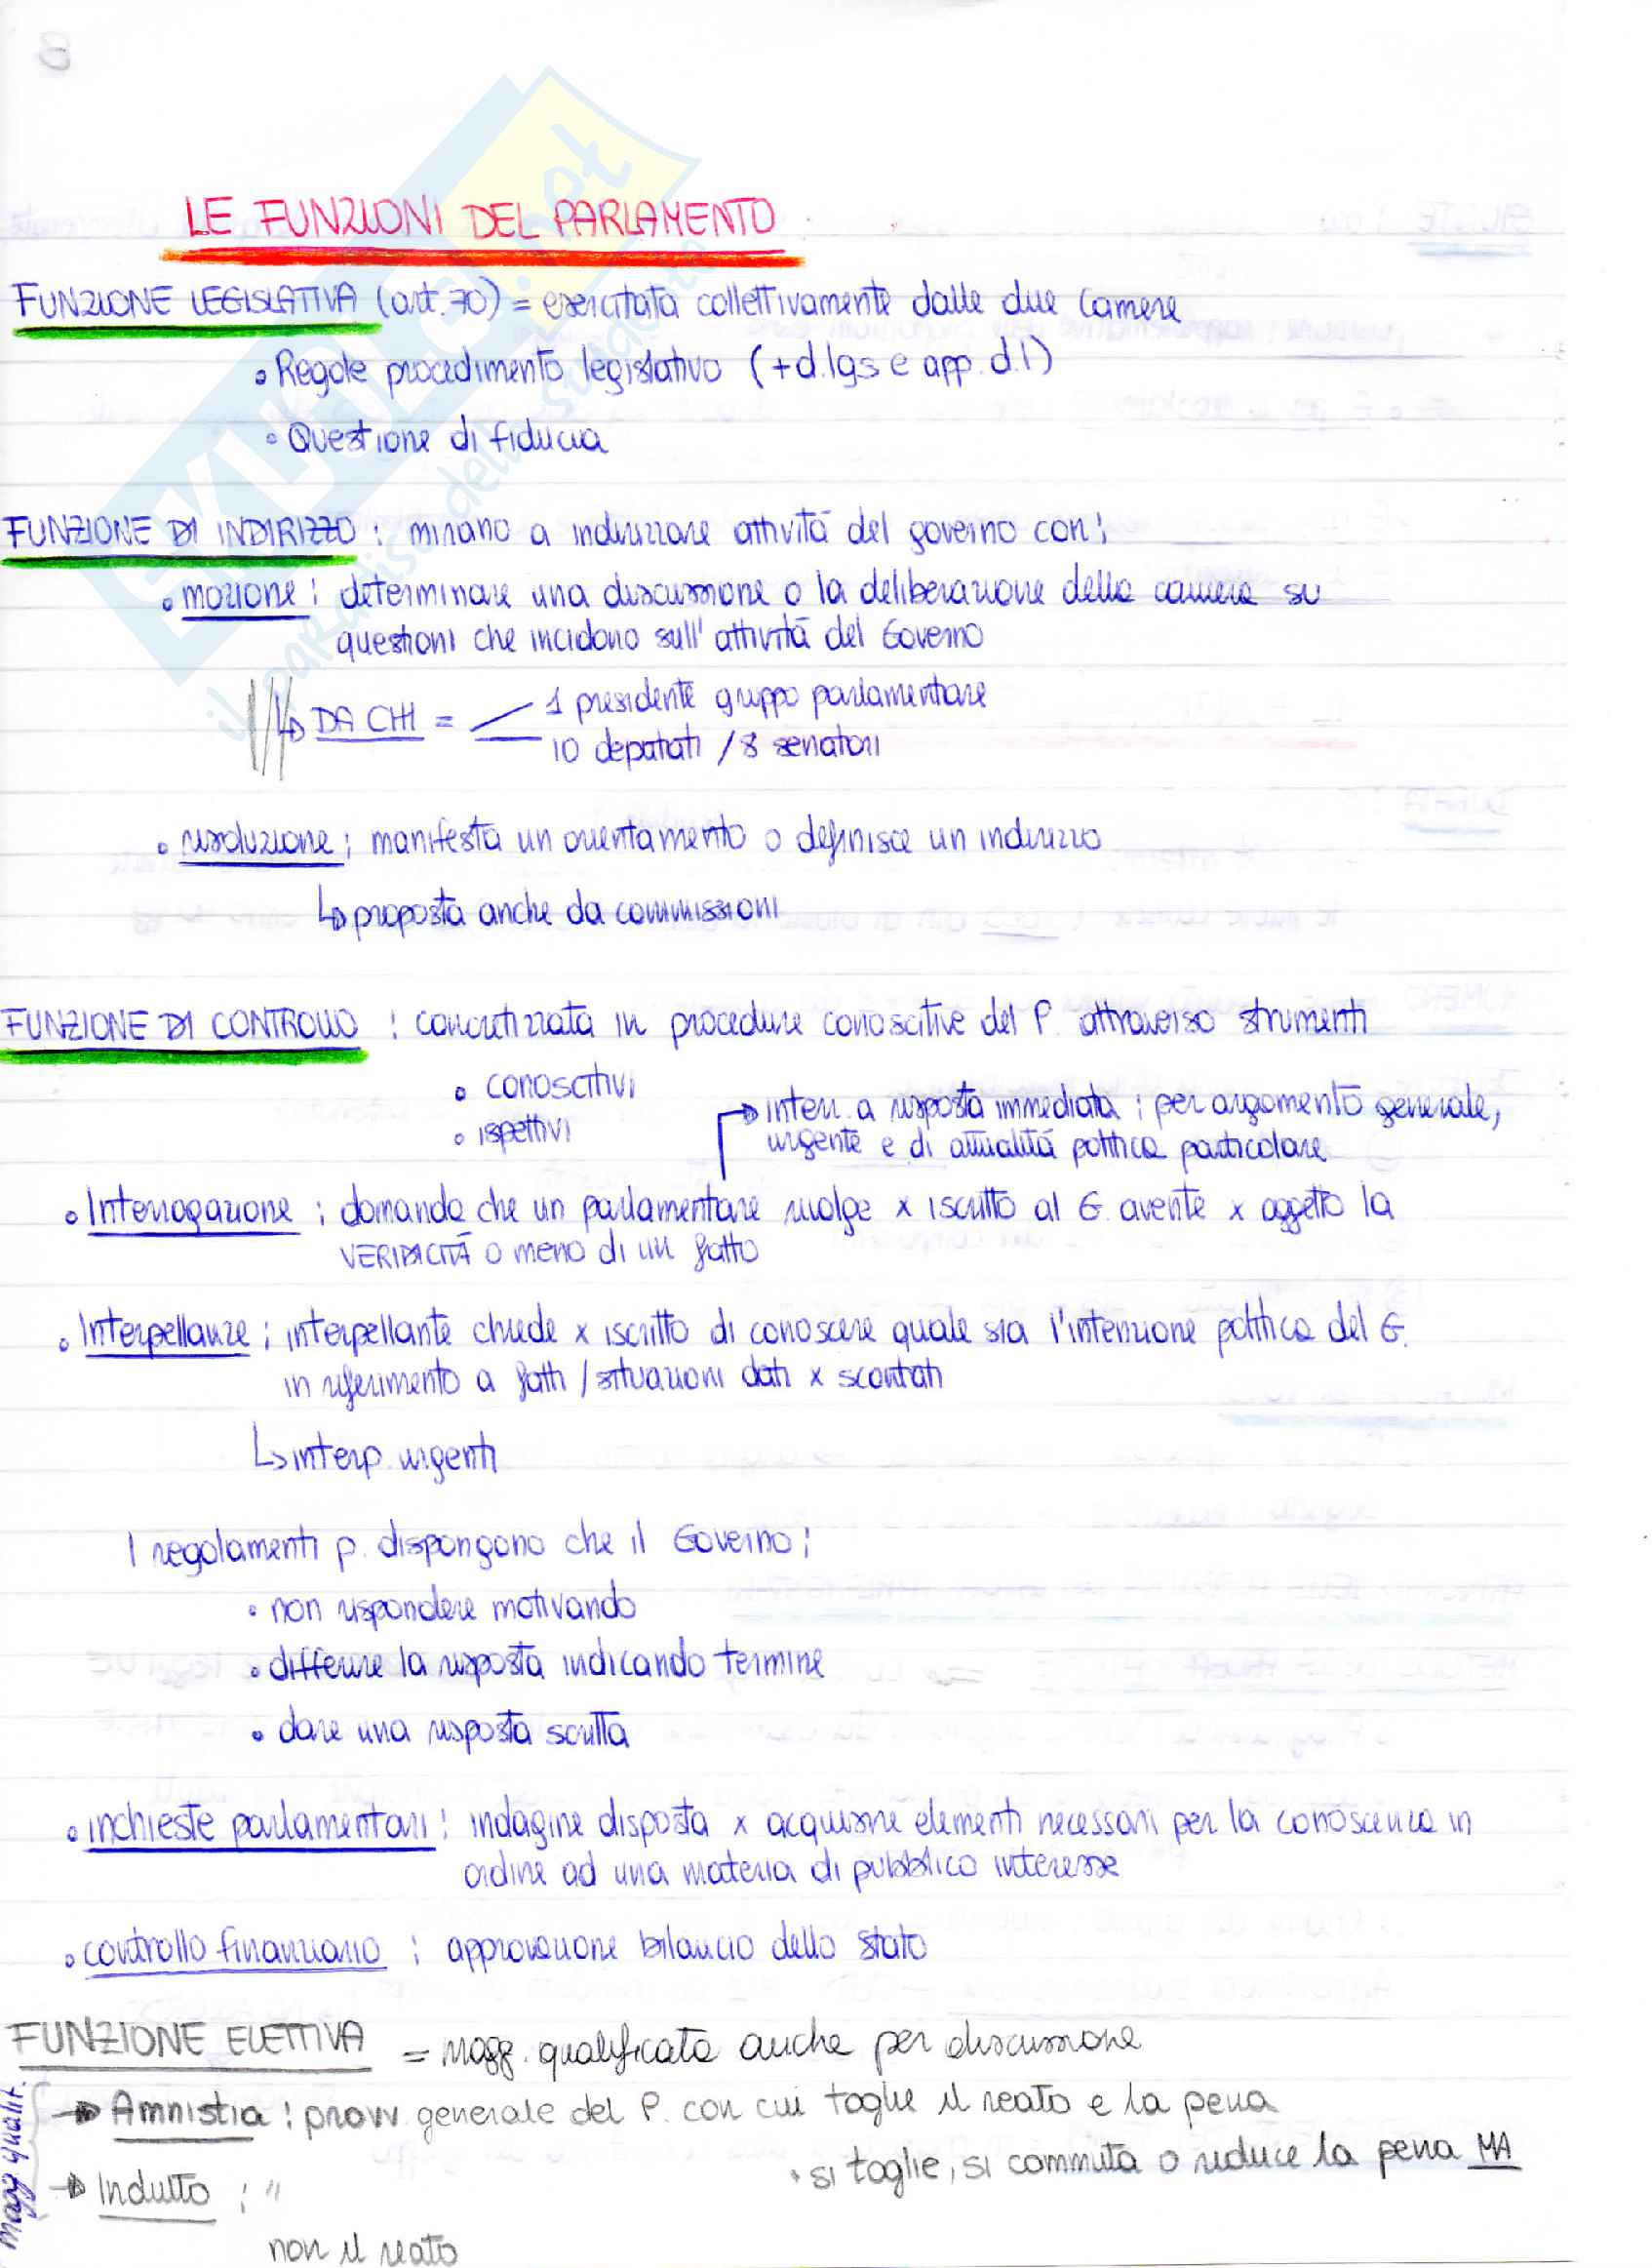 8
SKUOLA.net
il paradiso dello studente
LE FUNZIONI DEL PARLAMENTO
FUNZIONE LEGISLATIVA (art. 70) = esercitata collettivamente dalle due Camere
• Regole procedimento legislativo (+d.lgs e app. d.l)
• Questione di fiducia
FUNZIONE DI INDIRIZZO : mirano a indirizzare attività del governo con:
• mozione : determinare una discussione o la deliberazione della camera su
questioni che incidono sull'attività del Governo
↳ DA CHI = 1 presidente gruppo parlamentare
10 deputati / 8 senatori
• risoluzione : manifesta un orientamento o definisce un indirizzo
↳ proposta anche da commissioni
FUNZIONE DI CONTROLLO : concretizzata in procedure conoscitive del P. attraverso strumenti
• conoscitivi
• ispettivi
→ interr. a risposta immediata : per argomento generale,
urgente e di attualità politica particolare
• Interrogazione : domanda che un parlamentare rivolge x iscritto al G. avente x oggetto la
VERIDICITÀ o meno di un fatto
• Interpellanze : interpellante chiede x iscritto di conoscere quale sia l'intenzione politica del G.
in riferimento a fatti / situazioni dati x scontati
↳ interp. urgenti
I regolamenti p. dispongono che il Governo :
• non rispondere motivando
• differire la risposta indicando termine
• dare una risposta scritta
• inchieste parlamentari : indagine disposta x acquisire elementi necessari per la conoscenza in
ordine ad una materia di pubblico interesse
• controllo finanziario : approvazione bilancio dello Stato
FUNZIONE ELETTIVA = Magg. qualificata anche per discussione
magg qualif.
→ Amnistia : provv. generale del P. con cui toglie il reato e la pena
→ Indulto : " • si toglie, si commuta o riduce la pena MA
non il reato